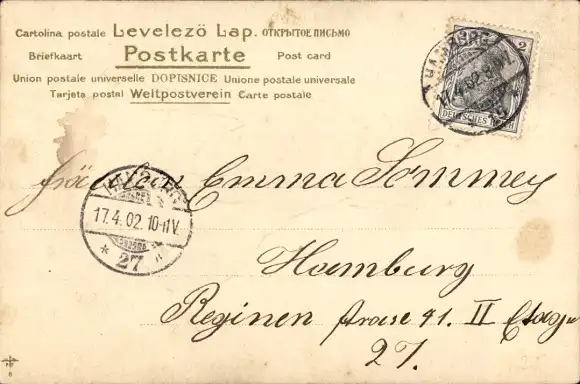 Cartolina postale Levelezö Lap. ОТКРЫТОЕ ПИСЬМО
Briefkaart Postkarte Post card
Union postale universelle DOPISNICE Unione postale universale
Tarjeta postal Weltpostverein Carte postale
HAMBURG
17.4.02
2
DEUTSCHES REICH
Emma Sommer
HAMBURG
17.4.02. 10-11V.
* 27 *
Hamburg
Reginen strasse 41. II Etage
27.